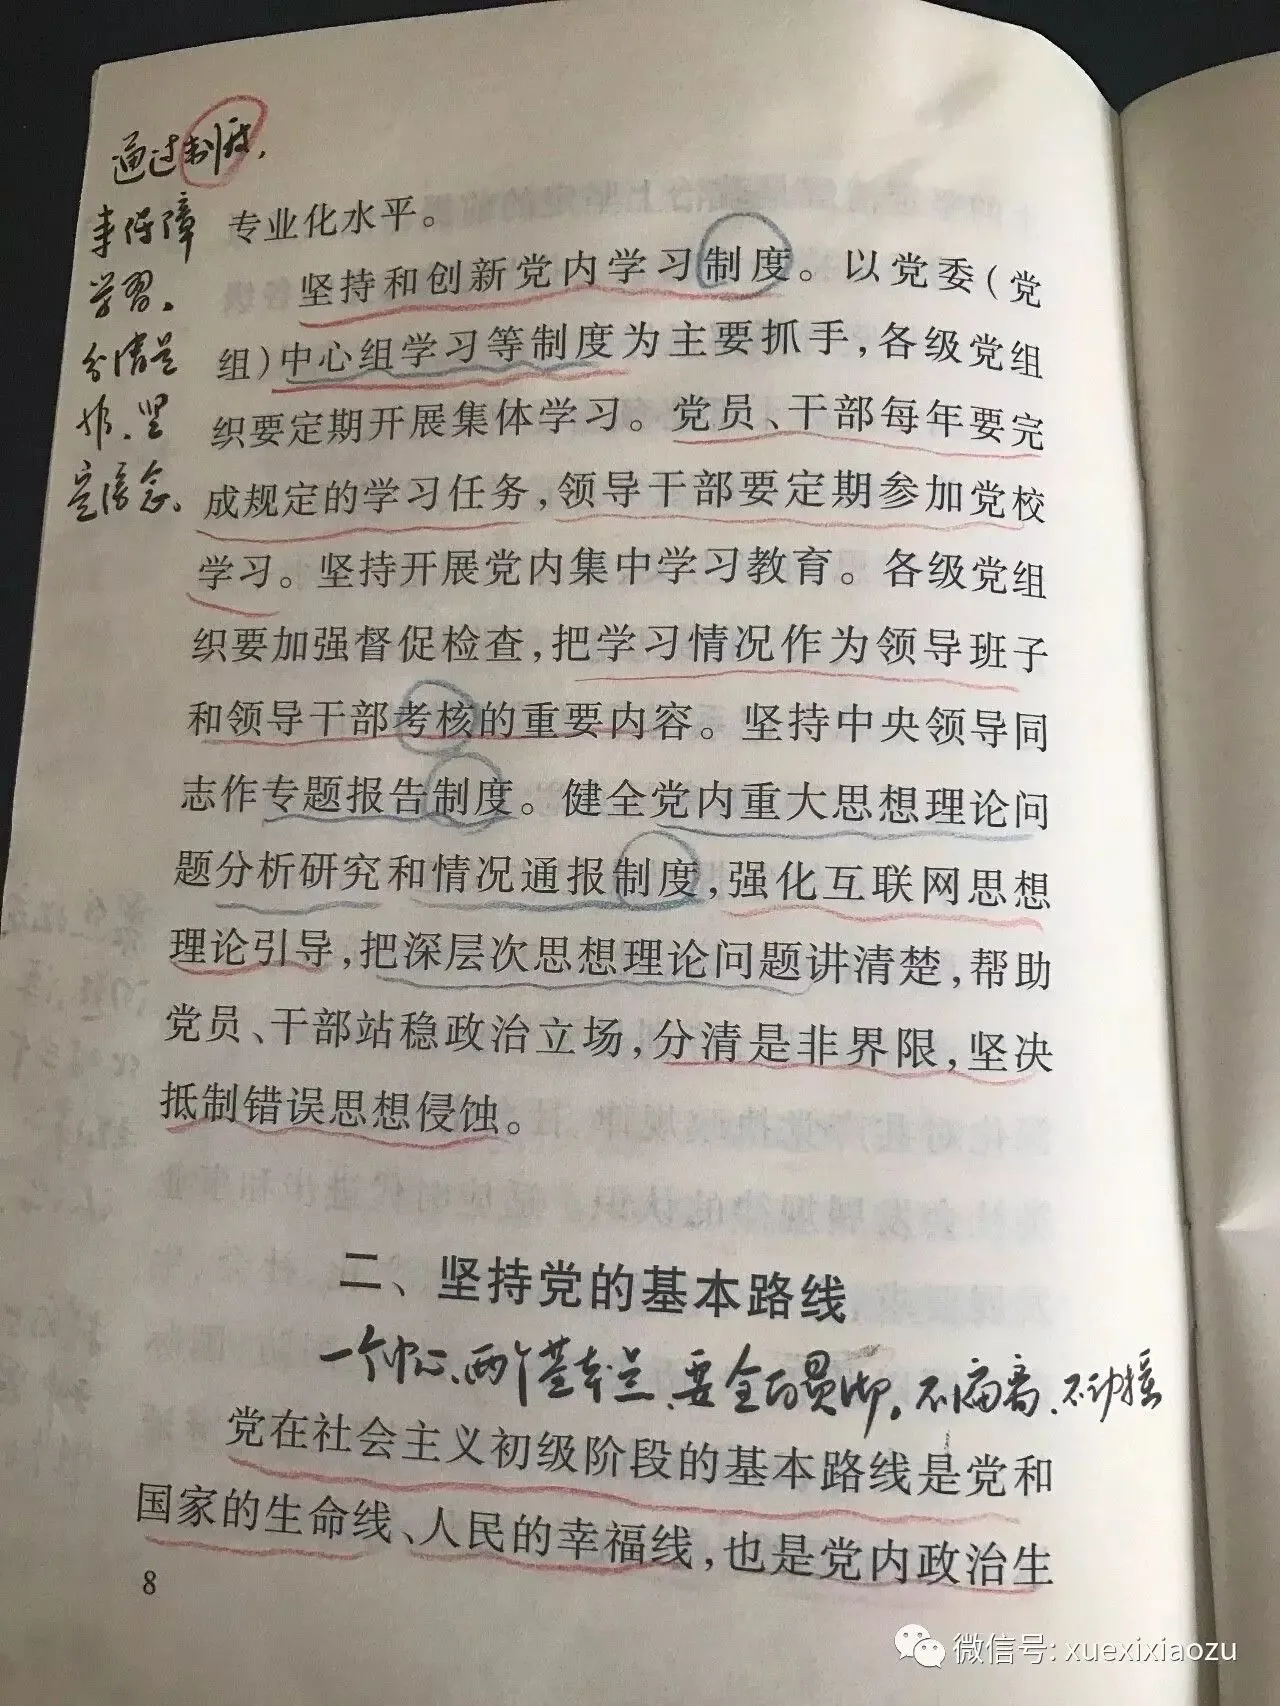 通过制度,
来保障
学习。
分清是
非、坚
定信念。
专业化水平。
坚持和创新党内学习制度。以党委(党
组)中心组学习等制度为主要抓手,各级党组
织要定期开展集体学习。党员、干部每年要完
成规定的学习任务,领导干部要定期参加党校
学习。坚持开展党内集中学习教育。各级党组
织要加强督促检查,把学习情况作为领导班子
和领导干部考核的重要内容。坚持中央领导同
志作专题报告制度。健全党内重大思想理论问
题分析研究和情况通报制度,强化互联网思想
理论引导,把深层次思想理论问题讲清楚,帮助
党员、干部站稳政治立场,分清是非界限,坚决
抵制错误思想侵蚀。
二、坚持党的基本路线
一个中心、两个基本点、要全面贯彻。不偏离、不动摇
党在社会主义初级阶段的基本路线是党和
国家的生命线、人民的幸福线,也是党内政治生
8
微信号: xuexixiaozu